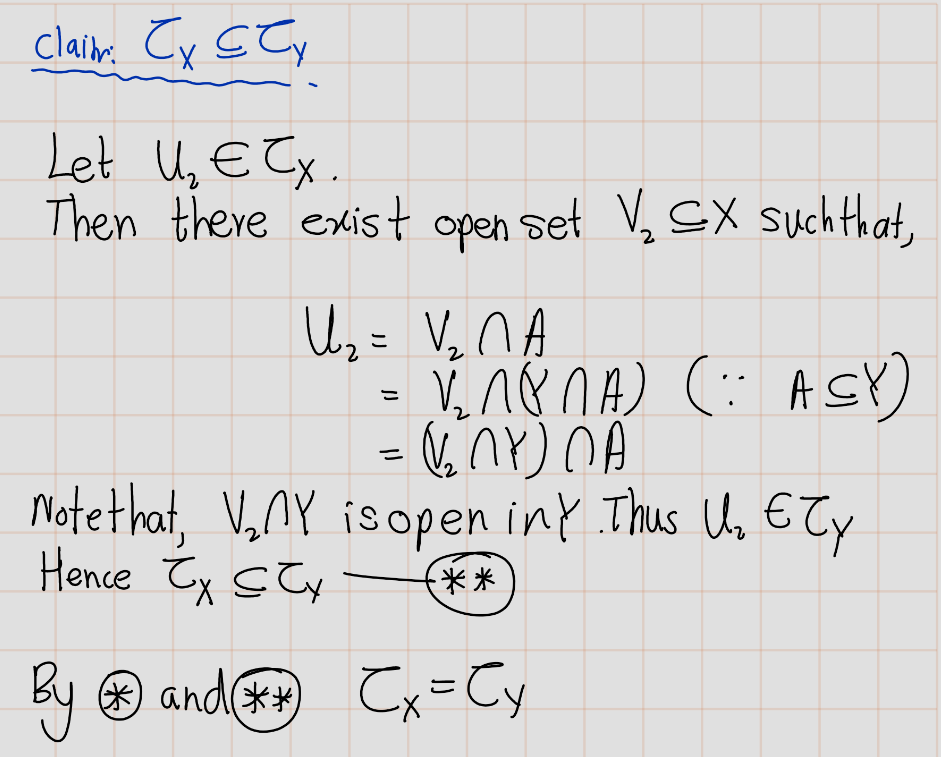 Claim: τ_X ⊆ τ_Y.
Let U₂ ∈ τ_X.
Then there exist open set V₂ ⊆ X such that,
U₂ = V₂ ∩ A
= V₂ ∩ (Y ∩ A) (∵ A ⊆ Y)
= (V₂ ∩ Y) ∩ A
Note that, V₂ ∩ Y is open in Y. Thus U₂ ∈ τ_Y
Hence τ_X ⊆ τ_Y — (**)
By (*) and (**) τ_X = τ_Y